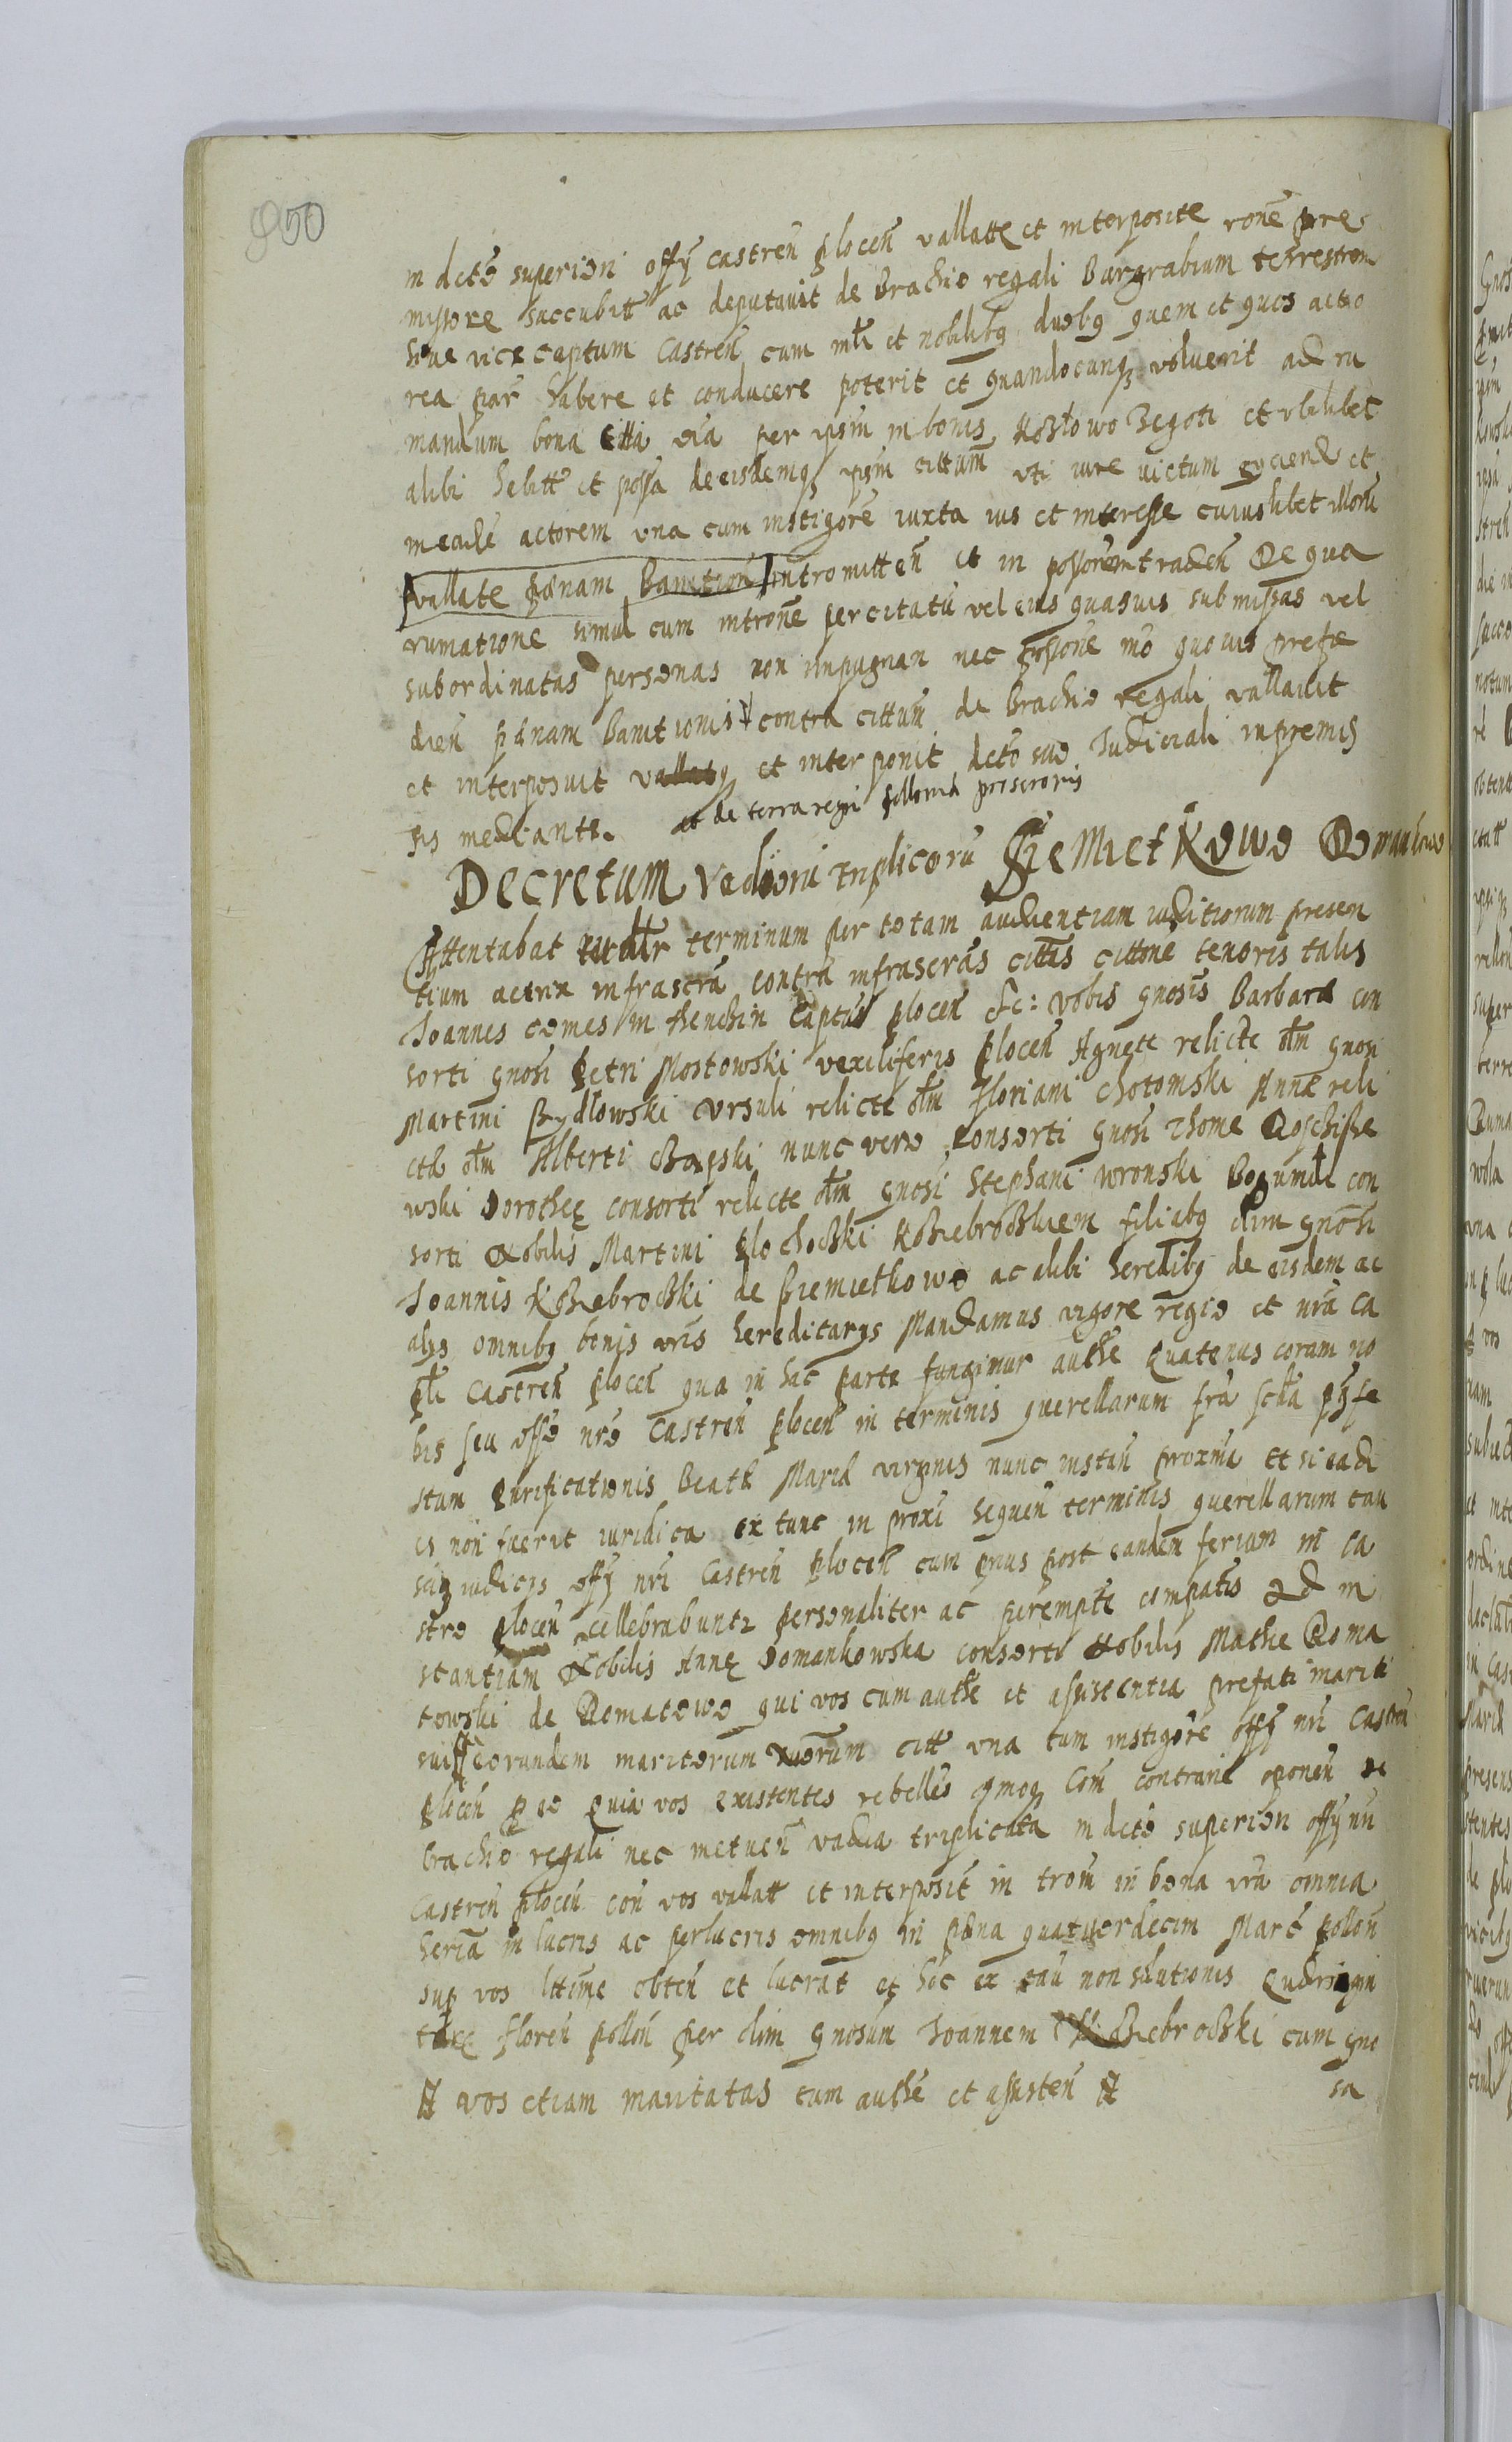 950
in dcto superiori offÿ castren plocen vallatte et interposite rone pre
missore succubitt ac deputauit de Brachio regali Burgrabium terrestrem
siue vice captum Castren cum mtli et nobilibq duobq quem et quos acto
rea par habere et conducere poterit et quandocunqz voluerit ad ru
mandum bona citta oia per ipsm in bonis Kozłowo Zegoti et vbilibet
alibi hebitt et possa de eisdemqz ipsm cittum vti iure victum eÿciend et
in eade actorem vna cum instigore iuxta ius et interesse cuiuslibet illoru
vallate pænam Banition intromitten et in possorem traden De qua
rumatione simul cum introne per citatu vel eius quasuis submissas vel
subordinatas personas non impugnan nec possone mo quouis prefe
dien pænam Banitionis contra cittum de Brachio regali vallauit
et interposuit vallatq et interponit dcto suo Judiciali in premis
sis mediante. et de terra regni
Decretum Vadioru triplicoru Siemietkowo Domankowo
Attentabat iudlr terminum per totam audientiam iuditiorum presen
tium actrix infrascra contra infrascras cittas cittone tenoris talis
Joannes comes in thenchin Captus plocen &c: vobis gnosis Barbaræ con
sorti gnosi Petri Mostowski vexiliferis Plocen Agnete relicte olm gnosi
Martini Bydłowski Vrsuli relicte olm Floriani Chotomski Annæ reli
ctæ olm Alberti Czapski nunc vero consorti gnosi Thome Roscisze
wski Dorothee consorti relicte olm gnosi Stephani Wronski Bogumile con
sorti Nobilis Martini Plochoczki Kozebroczkiem filiabq olim gnosi
Joannis Kozebroczki de Siemietkowo ac alibi heredibq de eisdem ac
alÿs omnibq bonis vris hereditarÿs Mandamus vigore regio et nra ca
ptli Castren plocen qua in hac parte fungimur authe Quatenus coram no
bis seu offo nro Castren plocen in terminis querellarum fra scda post fe
stum Purificationis Beatæ Mariæ virginis nunc instan proxma et si ead
is non fuerit iuridica ex tunc in proxi sequen terminis querellarum cau
sisqz iudicÿs offÿ nri Castren plocen cum prius post eandem feriam in ca
stro plocen cellebrabuntr personaliter ac perempte compatis Ad in
stantiam Nobilis Anne Domankowska consorti Nobilis Mathe Doma
towski de Domatowo qui vos cum authe et assistentia prefati mariti
sui # eorundem maritorum vrorum citt vna cum instigore offÿ nri Castren
plocen p eo Quia vos existentes rebelles contrarie oponen de
brachio regali nec metuen vadia triplicata in dcto superiori offÿ nri
Castren plocen con vos vallatt et interposit in trom in bona vra omnia
heria in lucris ac perlucris omnibq in pæna quatuordecim Marc pollon
sup vos lttime obten et lucrat et hoc ex cau non solutionis Quadringin
tore floren pollon per olim gnosum Joannem Kozebroczki cum gno
# vos etiam maritatas cum authe et assisten #
sa